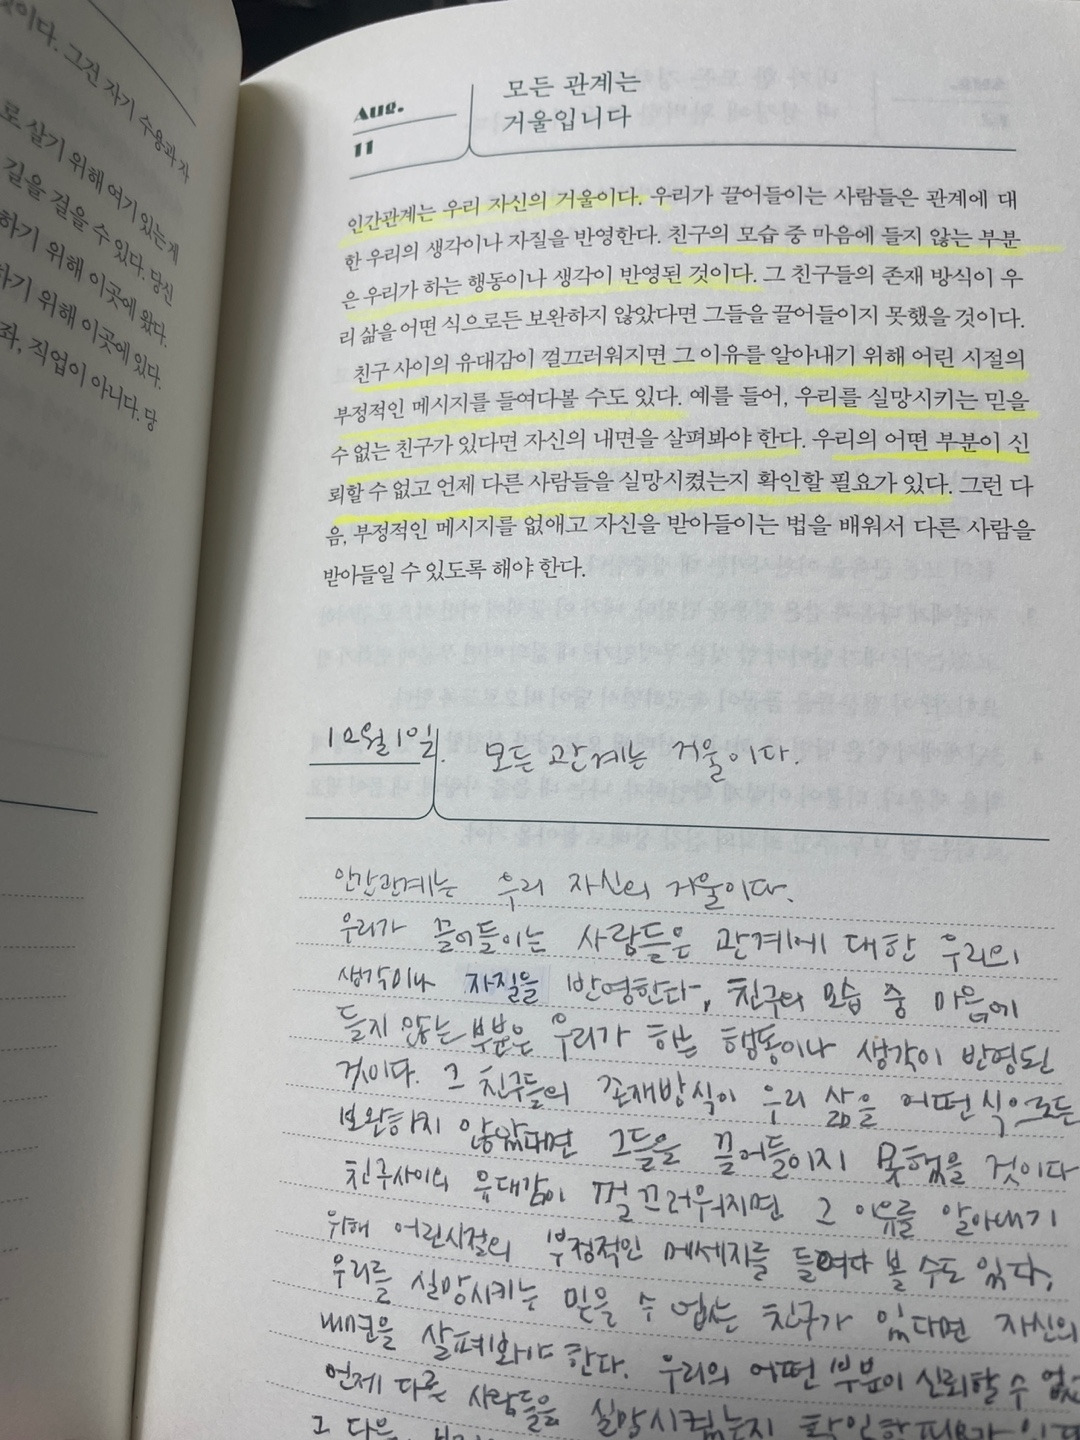 이다. 그건 자기 수용과 자
로 살기 위해 여기 있는 게
길을 걸을 수 있다. 당신
하기 위해 이곳에 왔다.
하기 위해 이곳에 있다.
좌, 직업이 아니다. 당
Aug.
11
모든 관계는
거울입니다
인간관계는 우리 자신의 거울이다. 우리가 끌어들이는 사람들은 관계에 대
한 우리의 생각이나 자질을 반영한다. 친구의 모습 중 마음에 들지 않는 부분
은 우리가 하는 행동이나 생각이 반영된 것이다. 그 친구들의 존재 방식이 우
리 삶을 어떤 식으로든 보완하지 않았다면 그들을 끌어들이지 못했을 것이다.
친구 사이의 유대감이 껄끄러워지면 그 이유를 알아내기 위해 어린 시절의
부정적인 메시지를 들여다볼 수도 있다. 예를 들어, 우리를 실망시키는 믿을
수 없는 친구가 있다면 자신의 내면을 살펴봐야 한다. 우리의 어떤 부분이 신
뢰할 수 없고 언제 다른 사람들을 실망시켰는지 확인할 필요가 있다. 그런 다
음, 부정적인 메시지를 없애고 자신을 받아들이는 법을 배워서 다른 사람을
받아들일 수 있도록 해야 한다.
10월 1일. 모든 관계는 거울이다.
인간관계는 우리 자신의 거울이다.
우리가 끌어들이는 사람들은 관계에 대한 우리의
생각이나 자질을 반영한다, 친구의 모습 중 마음에
들지 않는 부분은 우리가 하는 행동이나 생각이 반영된
것이다. 그 친구들의 존재방식이 우리 삶을 어떤식으로든
보완하지 않았다면 그들을 끌어들이지 못했을 것이다
친구사이의 유대감이 껄끄러워지면 그 이유를 알아내기
위해 어린시절의 부정적인 메세지를 들여다 볼 수도 있다,
우리를 실망시키는 믿을 수 없는 친구가 있다면 자신의
내면을 살펴봐야 한다. 우리의 어떤 부분이 신뢰할 수 없고
언제 다른 사람들을 실망시켰는지 확인할 필요가 있다
그 다음